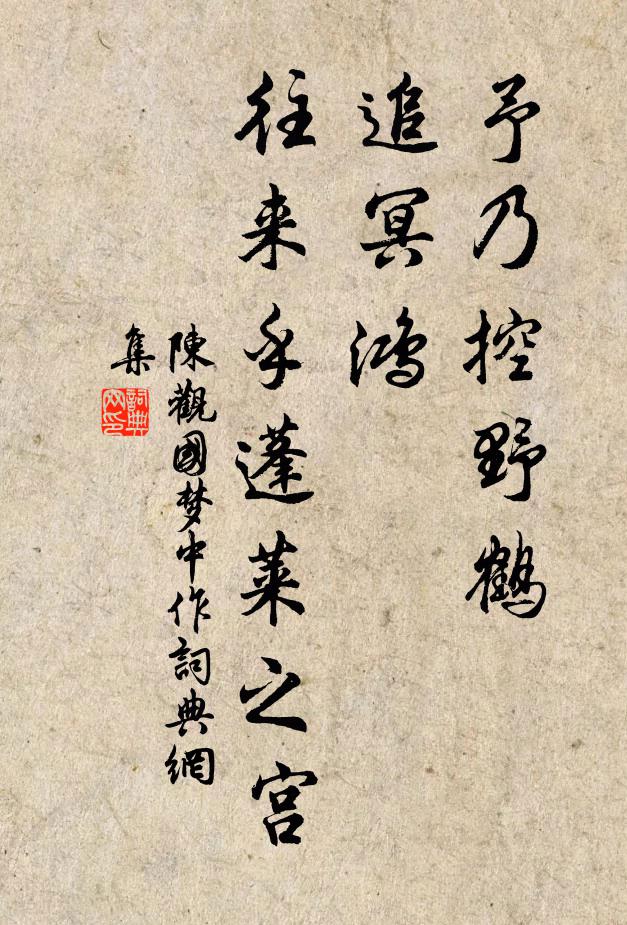 予乃控野鶴
追冥鴻
往来乎蓬莱之宫
陳觀國梦中作詞典網
集
詞典
网印